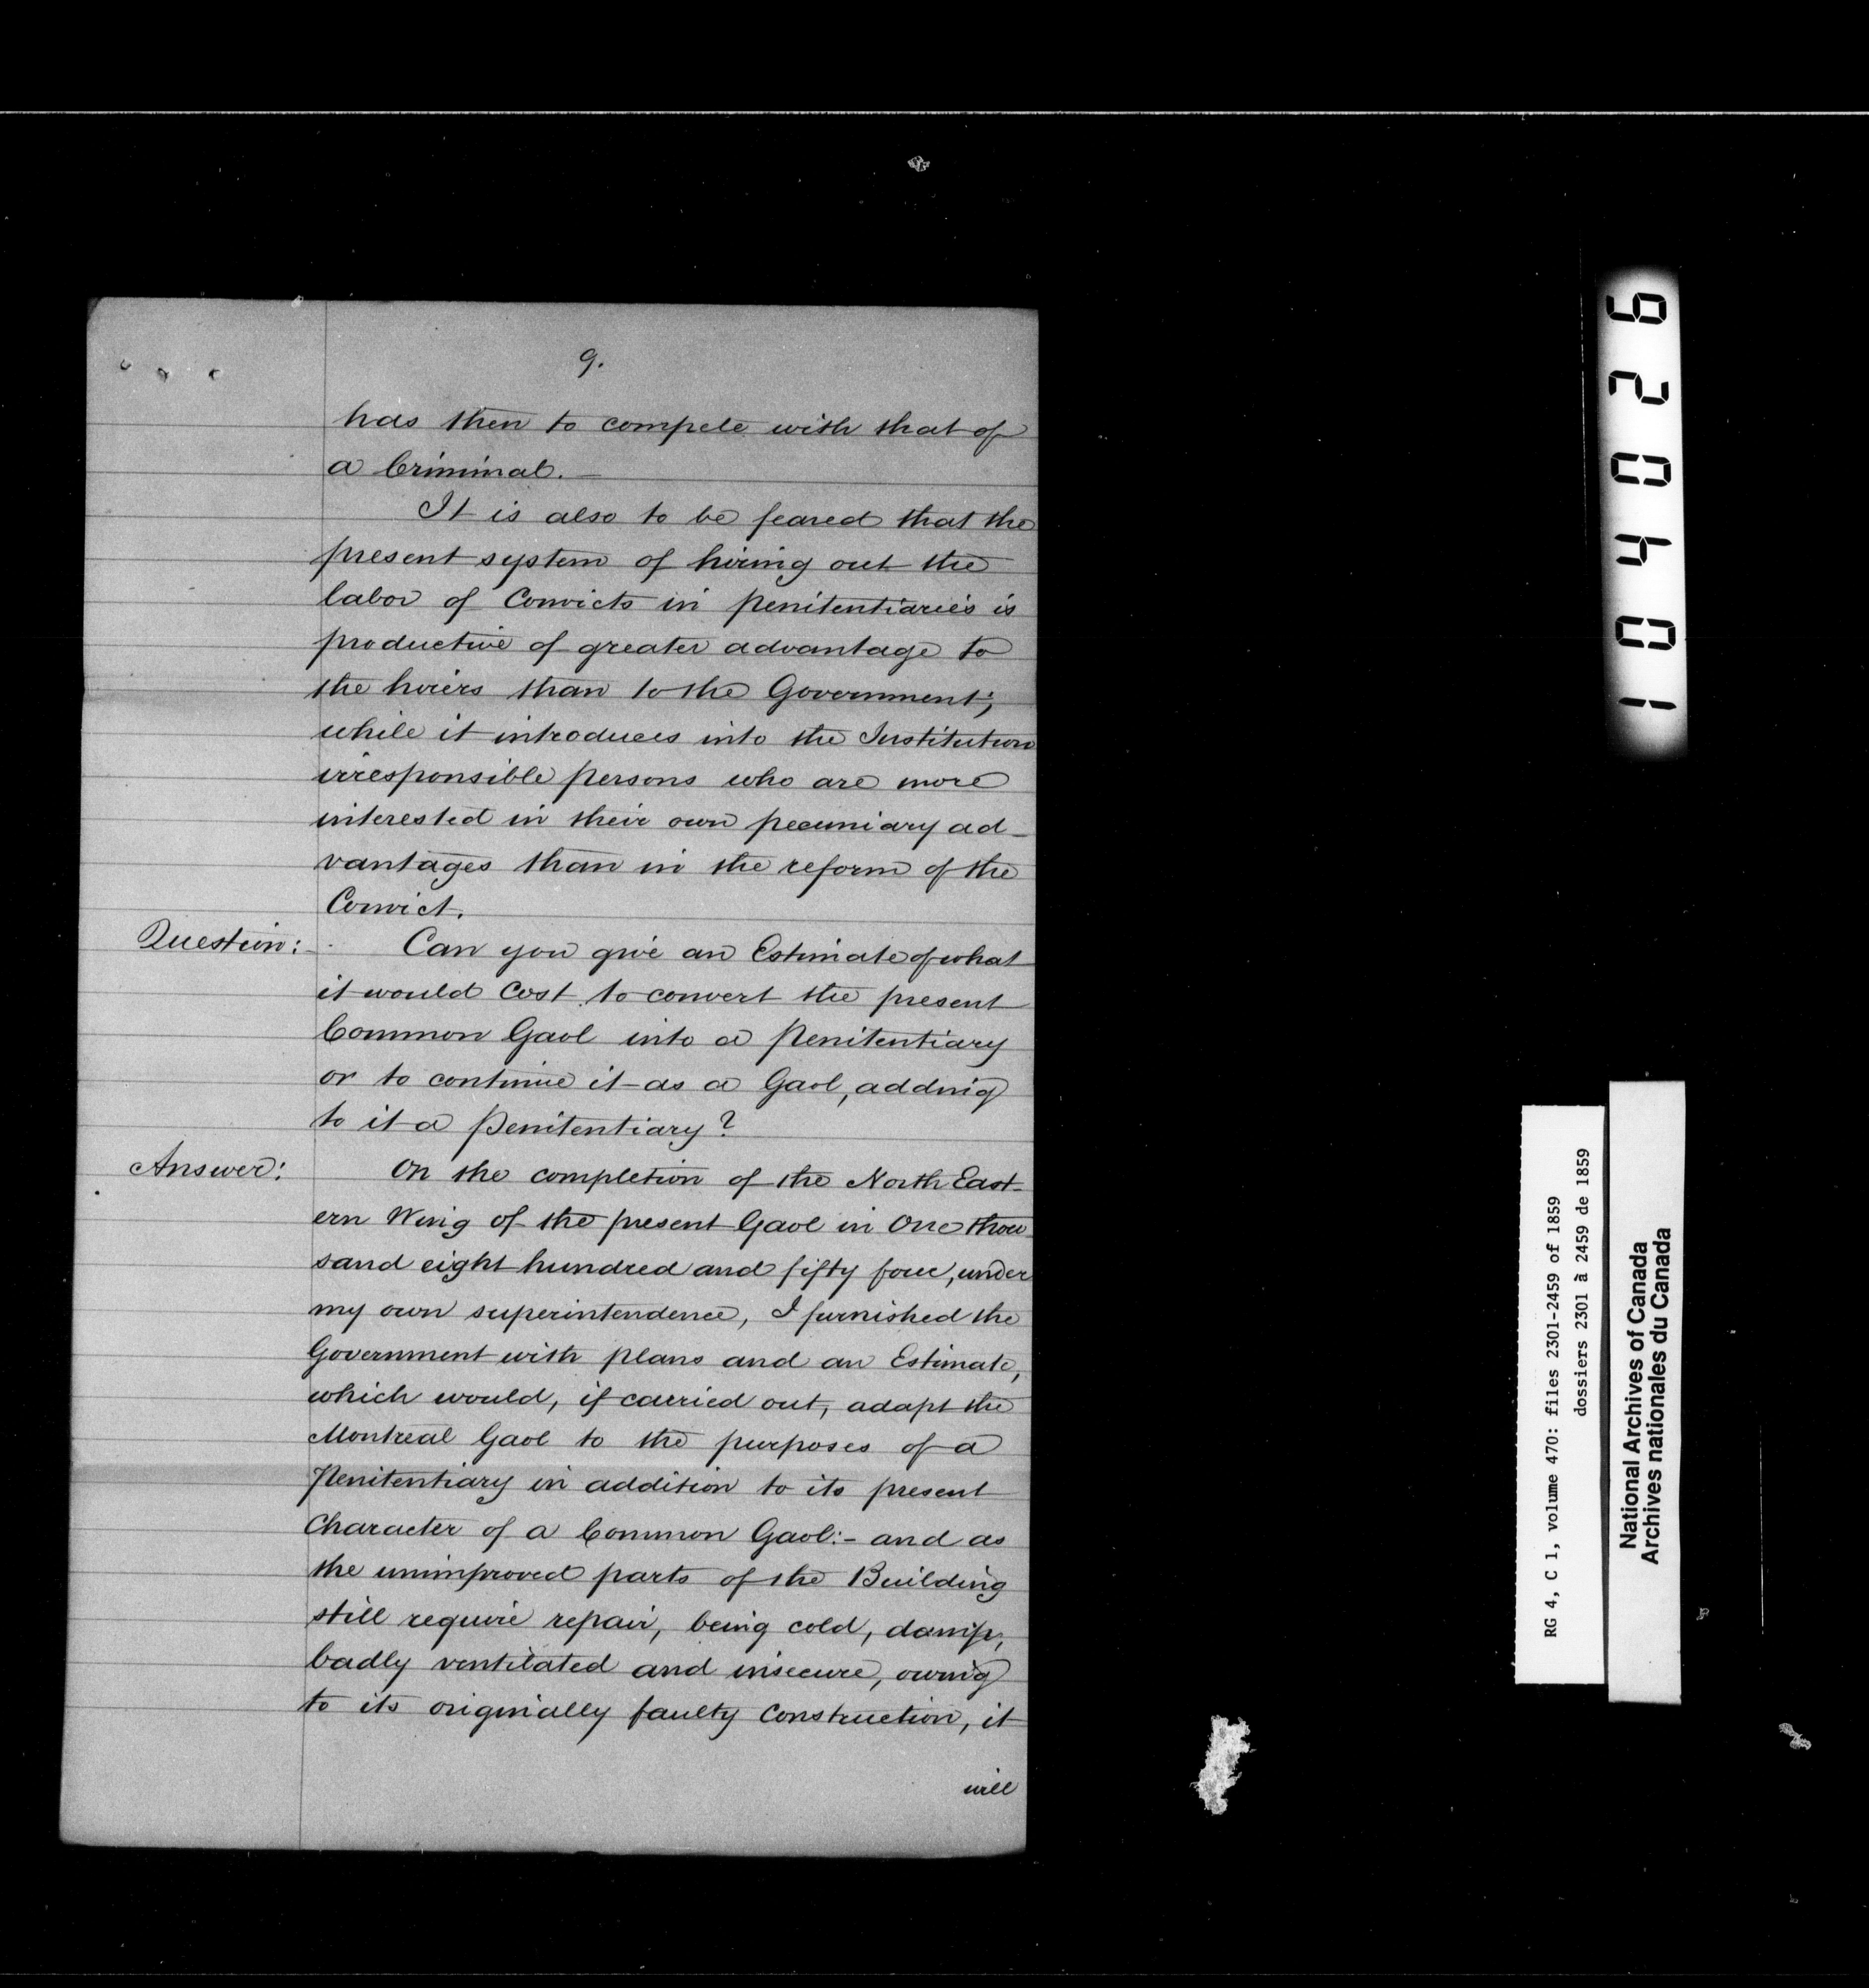 9.
has then to compete with that of
a Criminal.—
It is also to be feared that the
present system of hiring out the
labor of Convicts in penitentiaries is
productive of greater advantage to
the hirers than to the Government;
while it introduces into the Institution
irresponsible persons who are more
interested in their own pecuniary ad-
vantages than in the reform of the
Convict.
Question: Can you give an Estimate of what
it would Cost to convert the present
Common Gaol into a Penitentiary
or to continue it as a Gaol, adding
to it a Penitentiary?
Answer: On the completion of the North East-
ern Wing of the present Gaol in One thou
sand eight hundred and fifty four, under
my own superintendence, I furnished the
Government with plans and an Estimate,
which would, if carried out, adapt the
Montreal Gaol to the purposes of a
Penitentiary in addition to its present
Character of a Common Gaol:- and as
the unimproved parts of the Building
still require repair, being cold, damp,
badly ventilated and insecure, owing
to its originally faulty Construction, it
will
104029
RG 4, C 1, volume 470: files 2301-2459 of 1859
dossiers 2301 à 2459 de 1859
National Archives of Canada
Archives nationales du Canada